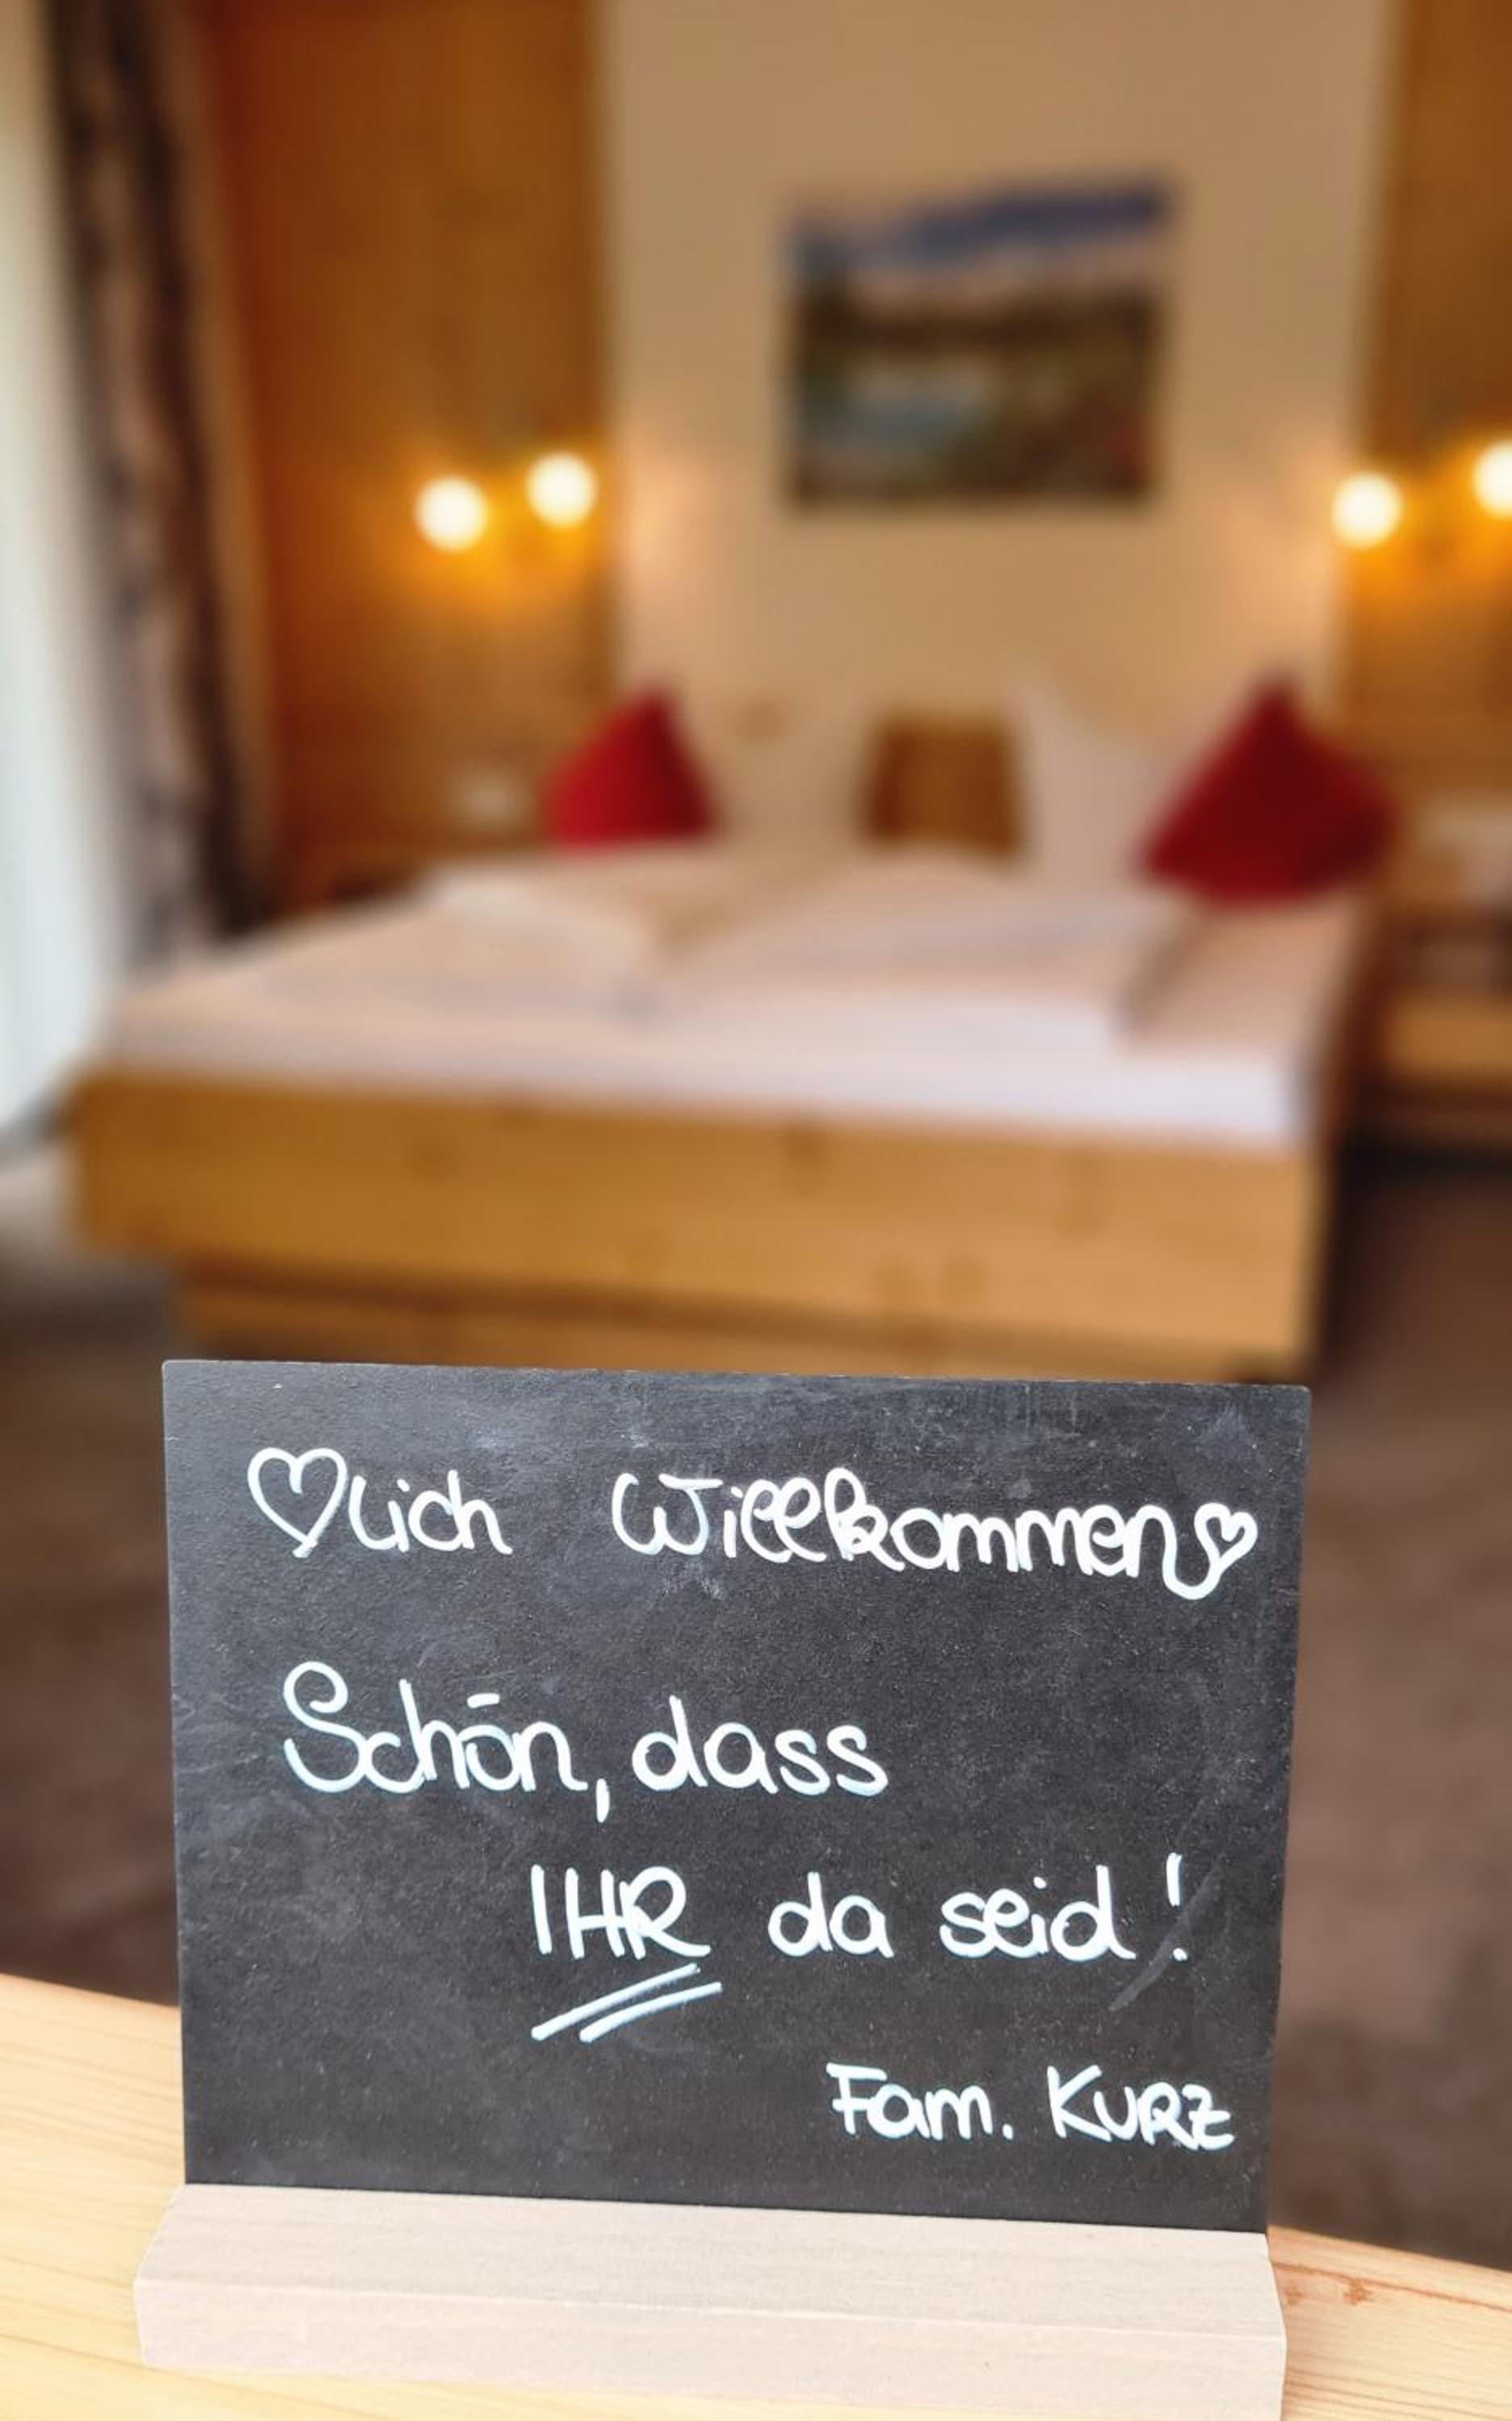 ♡lich Willkommen♡
Schön, dass
IHR da seid!
Fam. KURZ